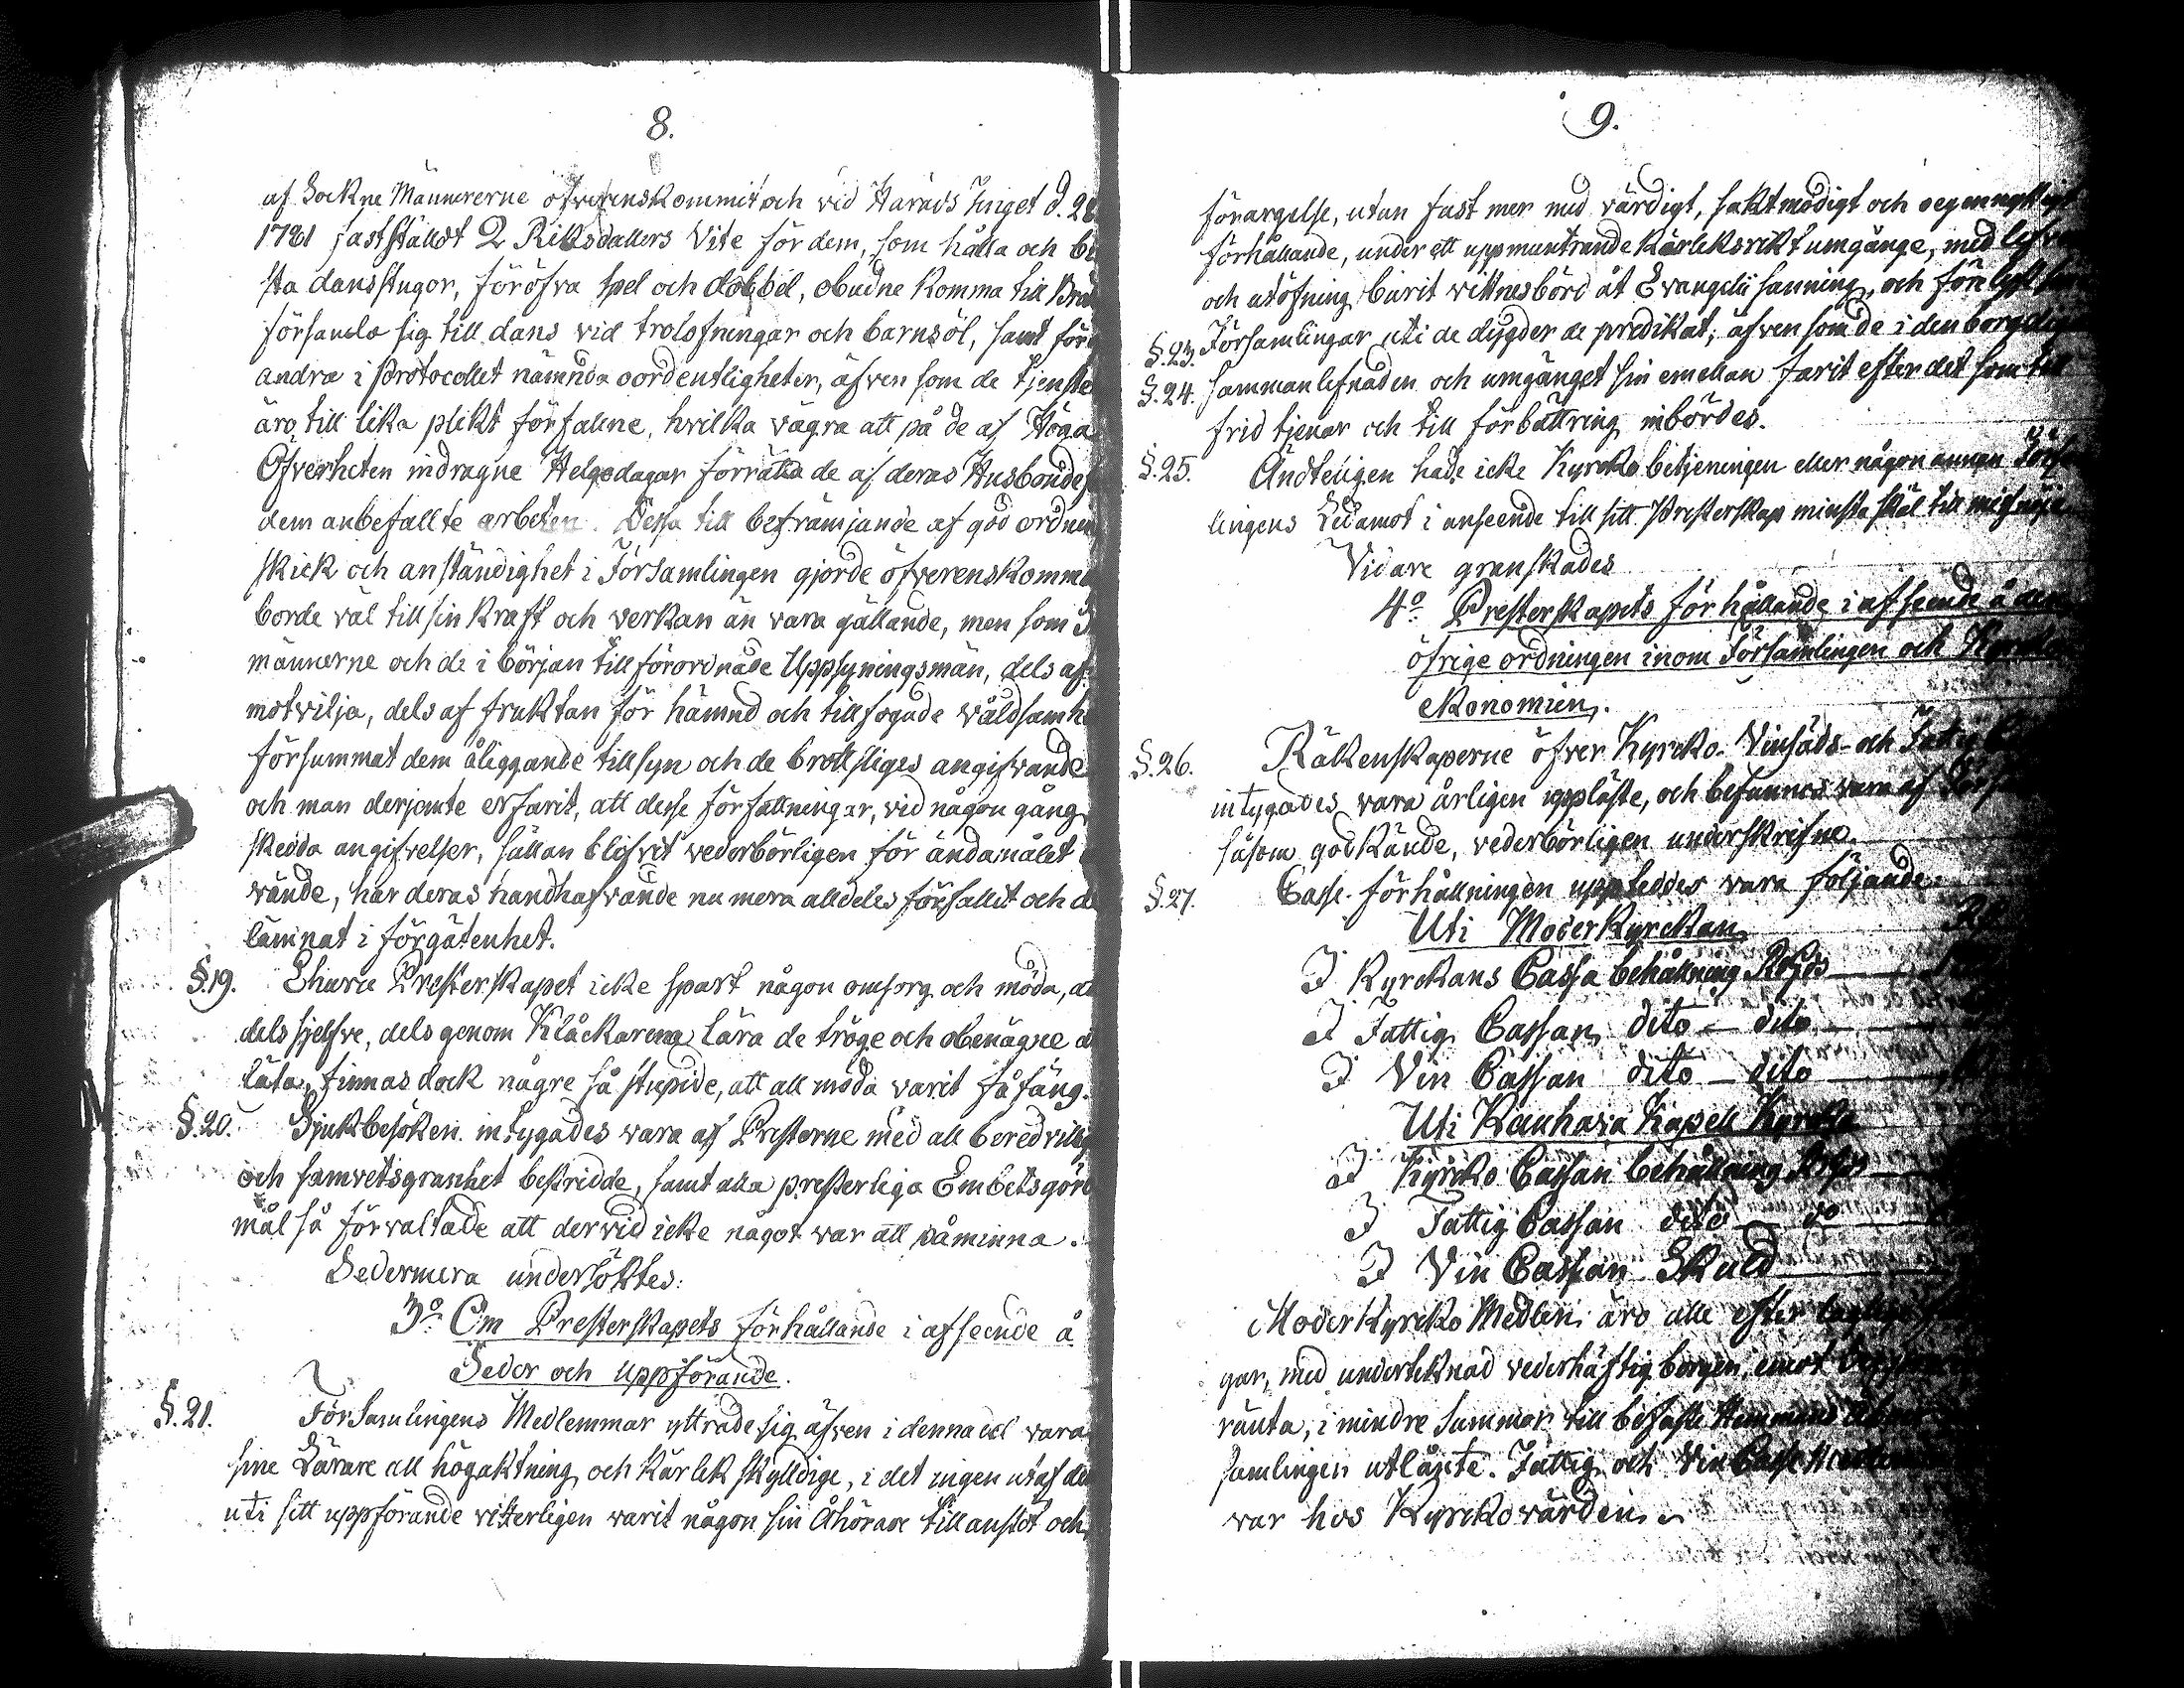 8.
af Sockne Männerne öfverenskommit och vid Härads Tinget d. 28
1781 fastställdt 2 Riksdallers Vite för dem, som hålla och be
sta dansstugor, föröfva spel och dobbel, obudne komma till Bröl
församla sig till dans vid trolofningar och barnsöl, samt för
andra i Protocollet nämnda oordentligheter, äfven som de tjenste
äro till lika plikt förfallne, hvilka vägra att på de af Höga
Öfverheten indragne Helgedagar förrätta de af deras Husbonde
dem anbefallte arbeten. Dessa till befrämjande af god ordning
skick och anständighet i Församlingen gjorde öfverenskomme
borde väl till sin kraft och verkan än vara gällande, men som
männerne och de i början tillförordnade Uppsyningsmän, dels af
motvilja, dels af fruktan för hämnd och tillfogade våldsamhe
försummat dem åliggande tillsyn och de brottsliges angifvande
och man derjemte erfarit, att desse författningar, vid någon gång
skedda angifvelser, sällan blifvit vederbörligen för ändamålet
vände, har deras handhafvande nu mera alldeles förfallit och de
lämnat i förgätenhet.
§.19. Ehuru Presterskapet icke spart någon omsorg och möda, at
dels sjelfve, dels genom Klåckarena lära de tröge och obenägne at
läta, finnas dock någre så stupide, att all möda varit fåfäng.
§.20. Sjukbesöken intygades vara af Presterne med all beredvillig
och samvetsgranhet bestridde, samt alla presterliga Embetsgöro
mål så förvaltade att dervid icke något var att påminna.
Sedermera undersöktes:
3o Om Presterskapets förhållande i afseende å
Seder och uppförande.
§.21. Församlingens Medlemmar yttrade sig äfven i denna del vara
sine Lärare all högaktning och kärlek skylldige, i det ingen utaf dem
uti sitt uppförande vitterligen varit någon sin Åhörare till anstöt och
9.
förargelse, utan fast mer med värdigt, saktmodigt och oegennyttigt
förhållande, under ett uppmuntrande kärleksrikt umgänge, med lefverne
och utöfning burit vittnesbörd åt Evangelii sanning, och förelyst
§.23. Församlingar uti de dygder de predikat; äfven som de i den borgerliga
§.24. sammanlefnaden och umgänget sin emellan farit efter det som till
frid tjenar och till förbättring inbördes.
§.25. Ändteligen hade icke Kyrcko betjeningen eller någon annan Försam
lingens Ledamot i anseende till sitt Presterskap minsta skäl till missnöje.
Vidare granskades
4o Presterskapets förhållande i afseende å den
öfrige ordningen inom Församlingen och Kyrcko
ekonomien.
§.26. Räkenskaperne öfver Kyrcko- Vinsäds- och Fattig
intygades vara årligen uppläste, och befunnos vara af Förs
såsom godkände, vederbörligen underskrifne.
§.27. Casse-förhållningen uppteddes vara följande
Uti Moderkyrckan
I Kyrckans Cassa behållning Rdgs
I Fattig Cassan dito — dito
I Vin Cassan dito — dito
Uti Kauhava Kapell Kyrcka
I Kyrcko Cassan behållning Rdgs
I Fattig Cassan dito — do
I Vin Cassan Skuld
ModerKyrcko Medlen äro alle efter
gar, med underteknad vederhäftig borgen, emot
ränta, i mindre summor till besuttne Hemmans
samlingen utlånte. Fattig och Vin Casse Medlen
var hos Kyrckovärden.